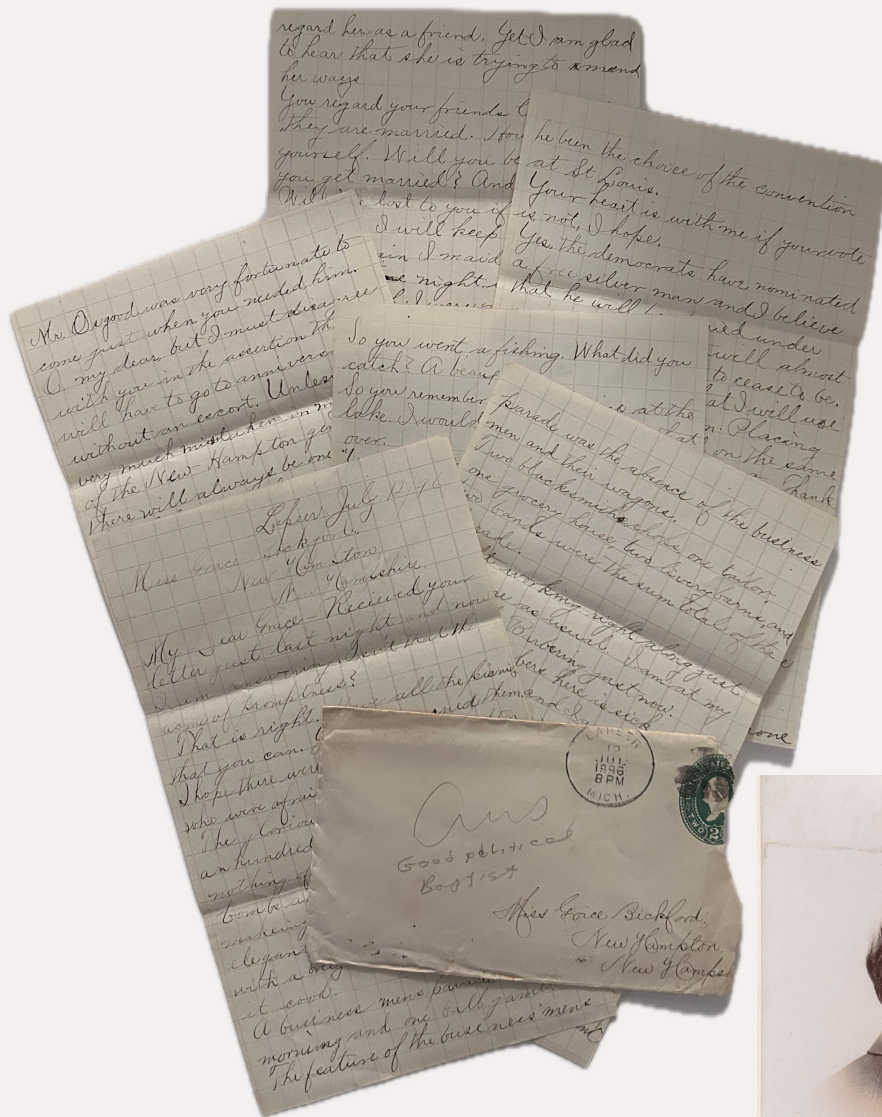 regard her as a friend. Yet I am glad
to hear that she is trying to amend
her ways
You regard your friends
they are married. How
yourself. Will you be
you get married? And
lost to you if
I will keep
night
he been the choice of the convention
at St Louis.
Your heart is with me if your vote
is not, I hope.
Yes, the democrats have nominated
a free silver man and I believe
that he will
under
will almost
to cease to be.
at I will use
Placing
on the same
Thank
Mr. Osgood was very fortunate to
come just when you needed him.
O, my dear, but I must disagree
with you in the assertion th
will have to go to annivers
without an escort. Unless
very much mistaken in m
of the New-Hampton ge
there will always be one
So you went a fishing. What did you
catch? A beau
So you remember
at the
lake. I would
over.
parade was the absence of the business
men and their wagons.
Two blacksmith shops, one tailor,
one grocery house, two livery barns, and
two bands were the sum total of the
rade.
working right along just
as usual. I am at my
Barbering just now.
bers here is sick
and I
one
Lapeer July 12, 96
Miss Grace Bickford,
New Hampton,
New Hampshire.
My Dear Grace- Recieved your
letter just last night and now
I am answering. Isn't that the
acme of promptness?
That is right. all the picnic
that you can.
I hope there wer
who were afrai
The gloriou
an hundred
nothing of
bombs a
making
elegan
with a
it cood.
A business mens parad
morning and one ball game
The feature of the business mens
LAPEER
12
JUL
1896
8 PM
MICH.
UNITED STATES
TWO 2
Ans
Good political
Baptist
Miss Grace Bickford,
New Hampton
New Hamps